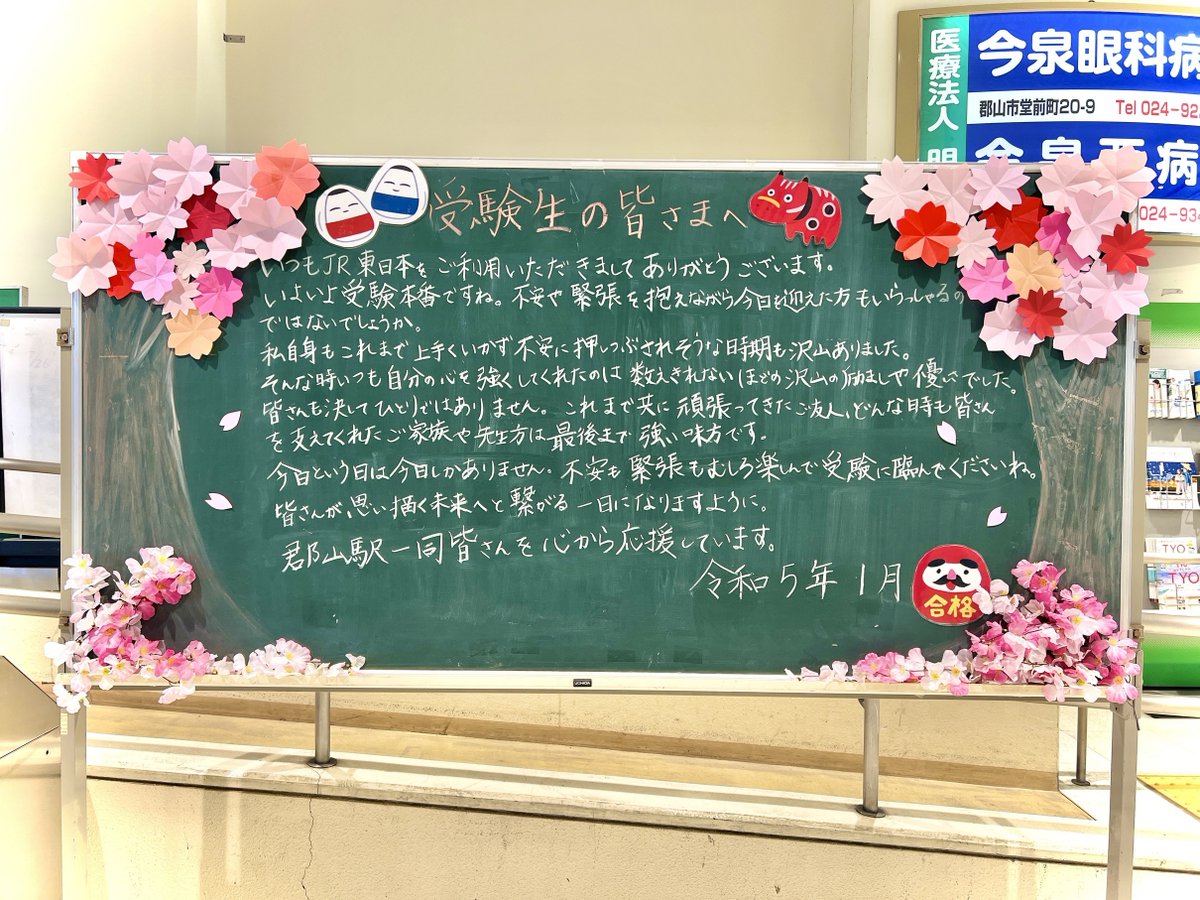 医療法人 明
今泉眼科病
郡山市堂前町20-9 Tel 024-92
024-934
受験生の皆さまへ
いつもJR東日本をご利用いただきましてありがとうございます。
いよいよ受験本番ですね。不安や緊張を抱えながら今日を迎えた方もいらっしゃるの
ではないでしょうか。
私自身もこれまで上手くいかず不安に押しつぶされそうな時期も沢山ありました。
そんな時いつも自分の心を強くしてくれたのは数えきれないほどの沢山の励ましや優しさでした。
皆さんも決してひとりではありません。これまで共に頑張ってきたご友人、どんな時も皆さん
を支えてくれたご家族や先生方は最後まで強い味方です。
今日という日は今日しかありません。不安も緊張もむしろ楽しんで受験に臨んでくださいね。
皆さんが思い描く未来へと繋がる一日になりますように。
郡山駅一同皆さんを心から応援しています。
令和5年1月
合格
TYO
TYO